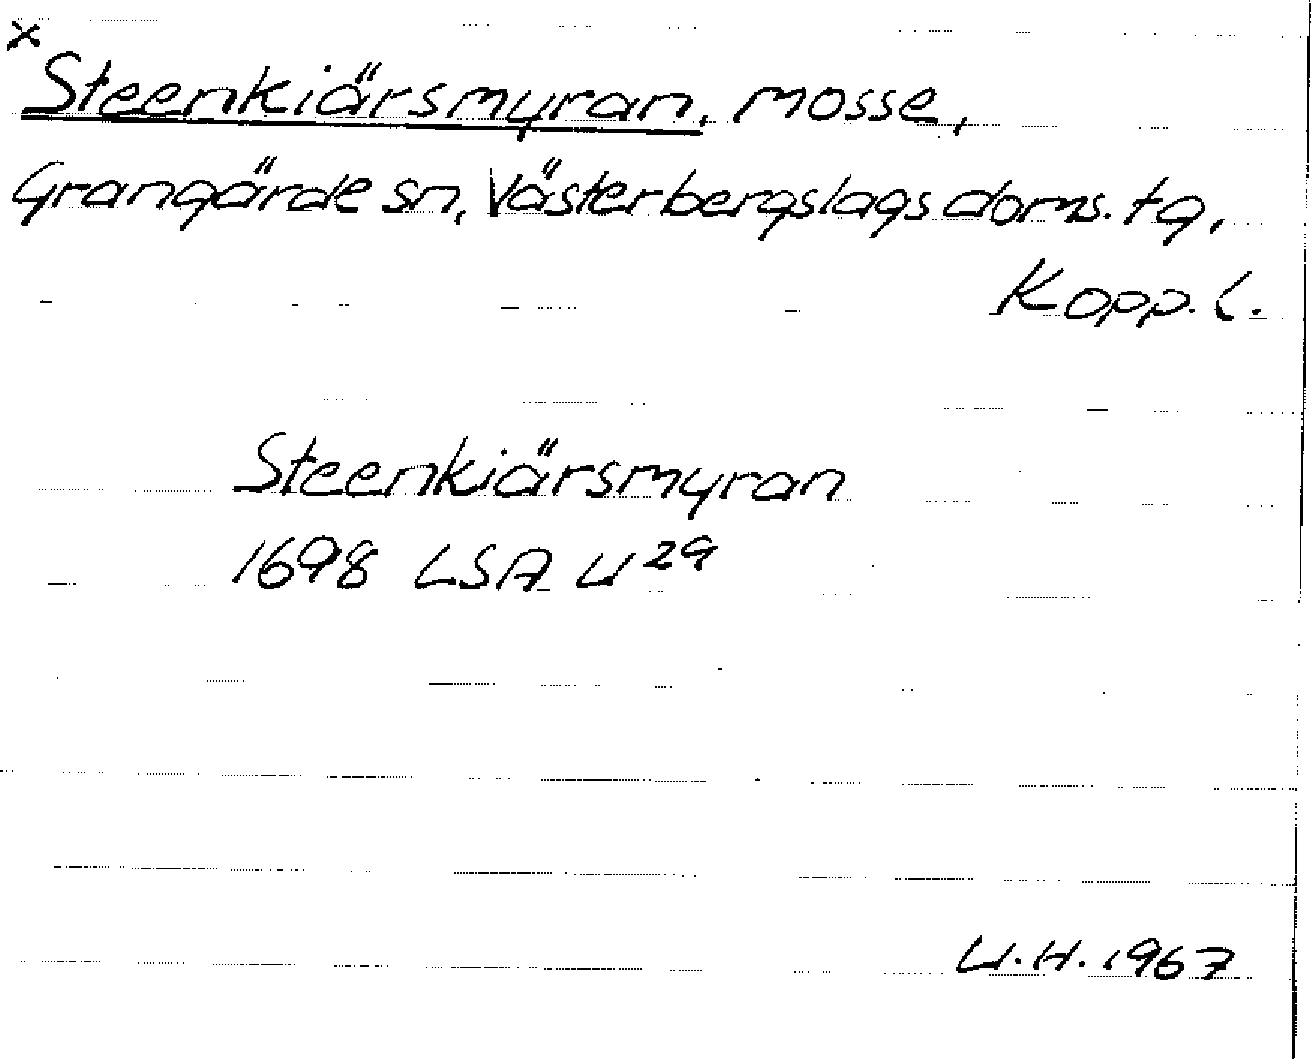 x
Steenkiärsmyran, mosse,
Grangärde sn, Västerbergslags doms. tg,
Kopp. l.
Steenkiärsmyran
1698 LSA U²⁹
U.H. 1967